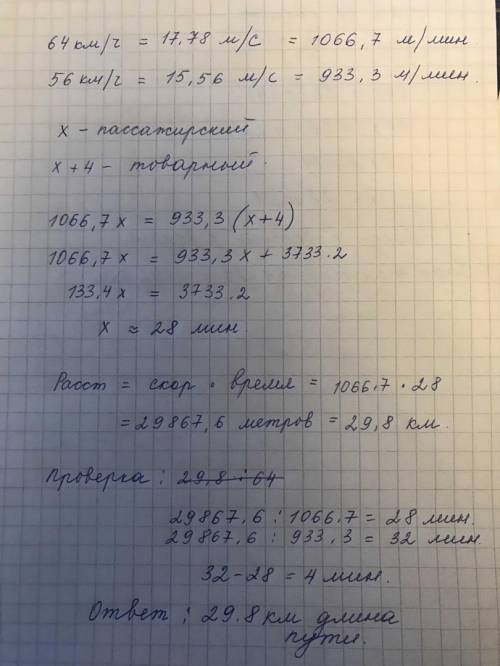 64 км/ч = 17.78 м/с = 1066,7 м/мин
56 км/ч = 15,56 м/с = 933,3 м/мин.
x - пассажирский
x + 4 - товарный.
1066,7 x = 933,3 (x+4)
1066,7 x = 933,3 x + 3733.2
133.4 x = 3733.2
x ≈ 28 мин
Расст = скор • время = 1066.7 • 28
= 29867,6 метров = 29,8 км.
Проверка : 29,8 : 64
29867.6 : 1066.7 = 28 мин.
29867,6 : 933,3 = 32 мин.
32 - 28 = 4 мин.
Ответ : 29.8 км длина
пути.